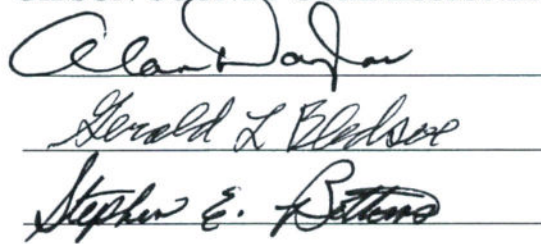 Alan Taylor
Gerald L Bledsoe
Stephen E. Bottoms